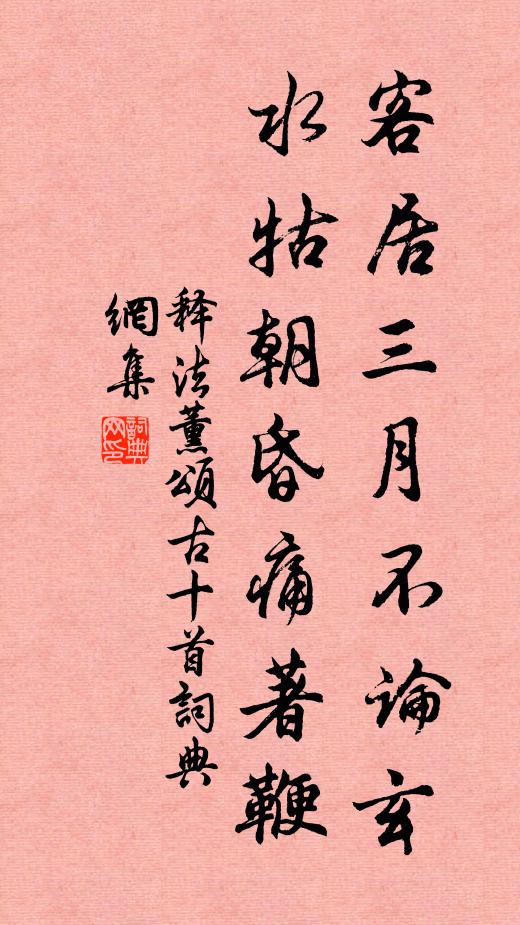 客居三月不論玄
水牯朝昏痛著鞭
释法薰頌古十首詞典
網集
詞典
网印